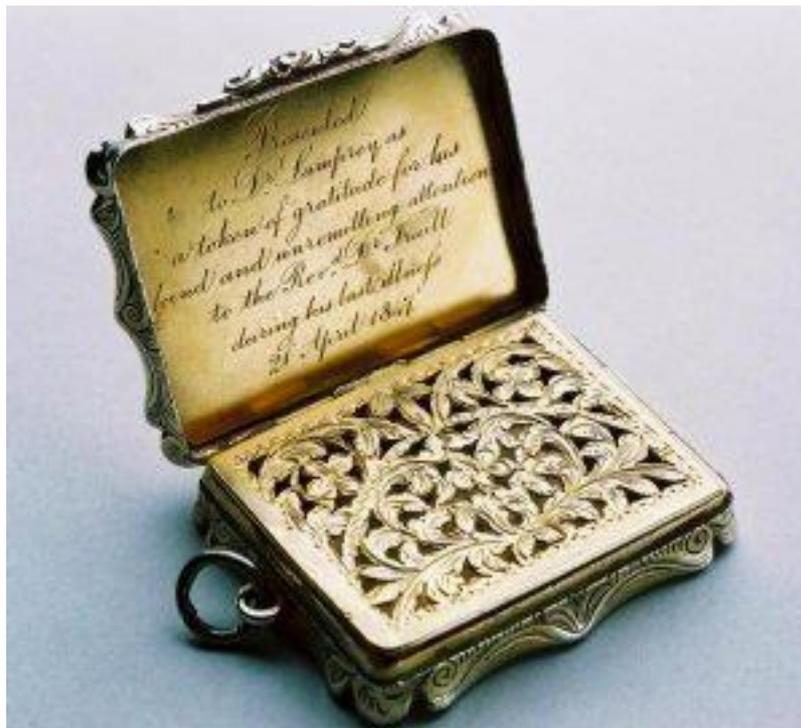 Presented
to Dr. Lamprey as
a token of gratitude for his
kind and unremitting attention
to the Revd. Dr.
during his last illness
21 April 1847